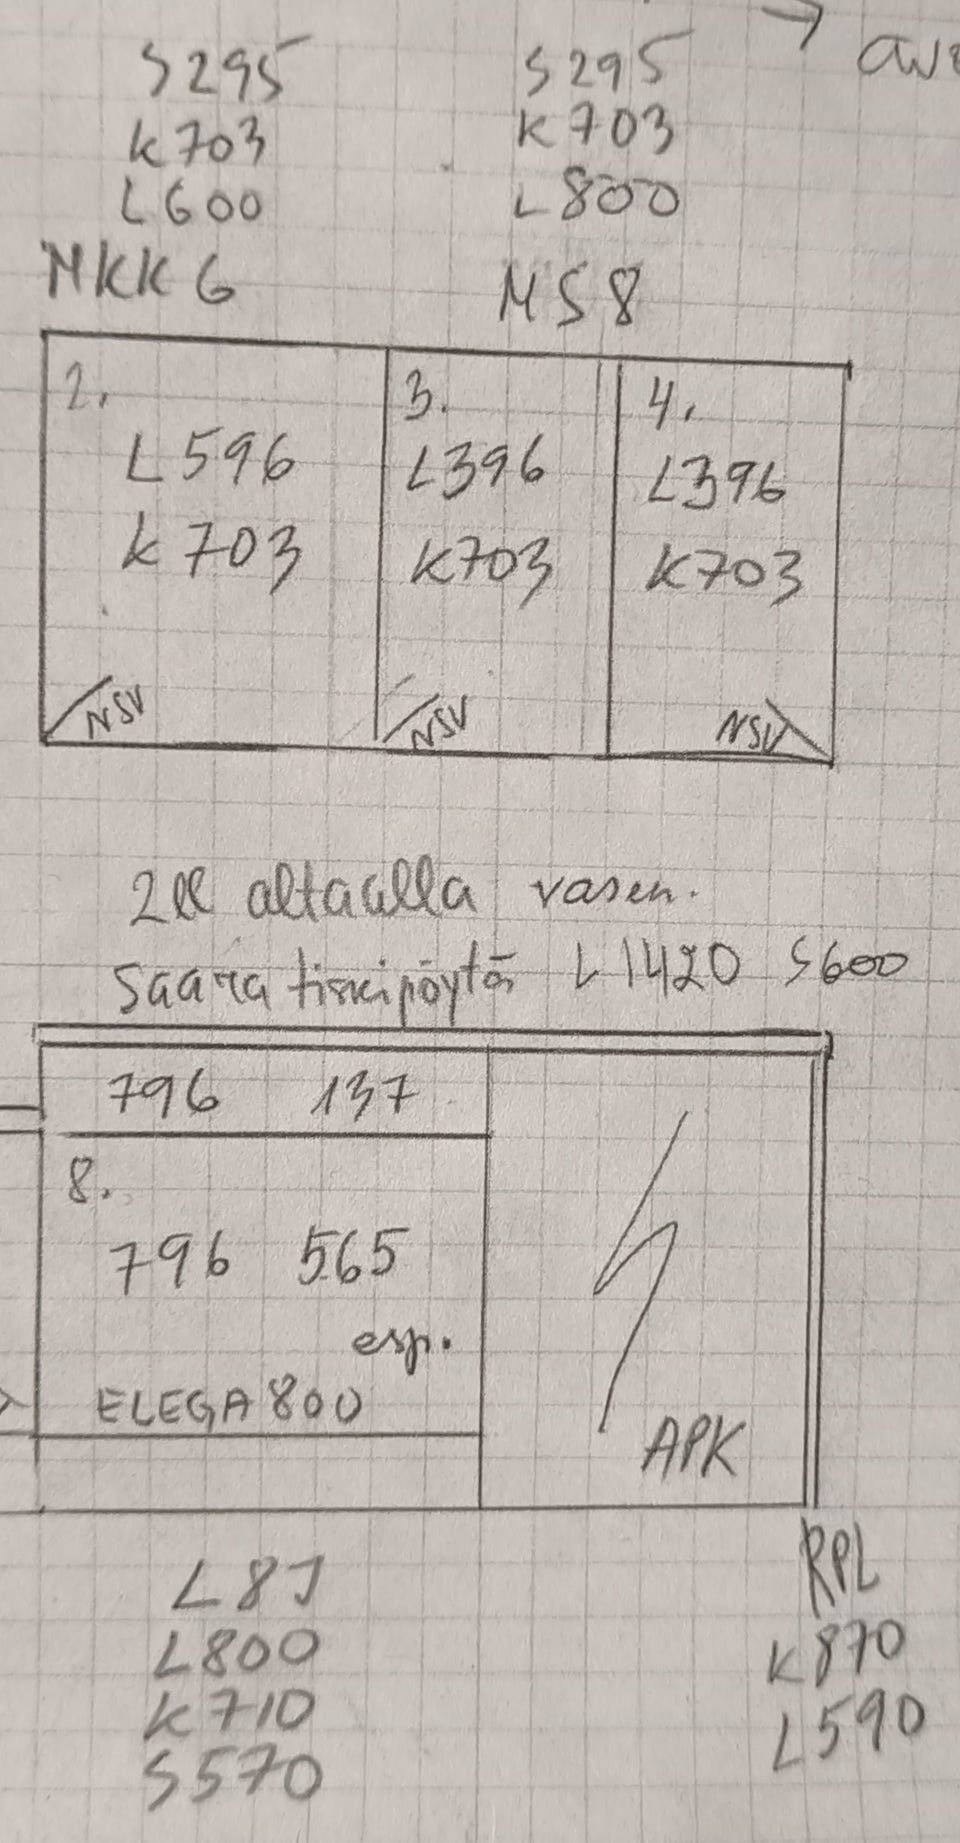 S295 S295
K703 K703
L600 L800
MKK6 MS8
2. 3. 4.
L596 L396 L396
K703 K703 K703
NSV NSV NSV
2:ll altaalla vasen.
Saara tiskipöytä L1420 S600
796 137
8.
796 565
esp.
ELEGA 800
APK
L8J RPL
L800 K870
K710 L590
S570